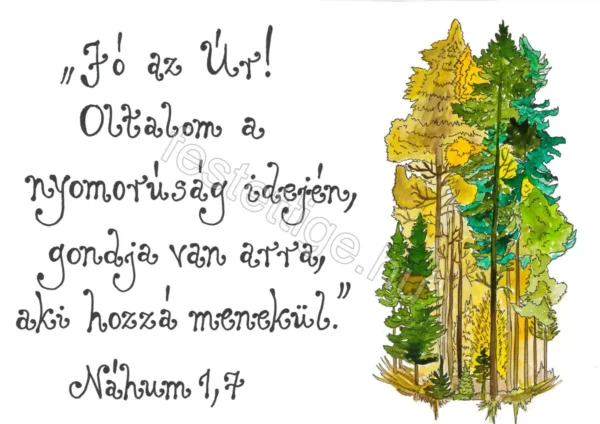 „Jó az Úr!
Oltalom a
nyomorúság idején,
gondja van arra,
aki hozzá menekül.”
Náhum 1,7